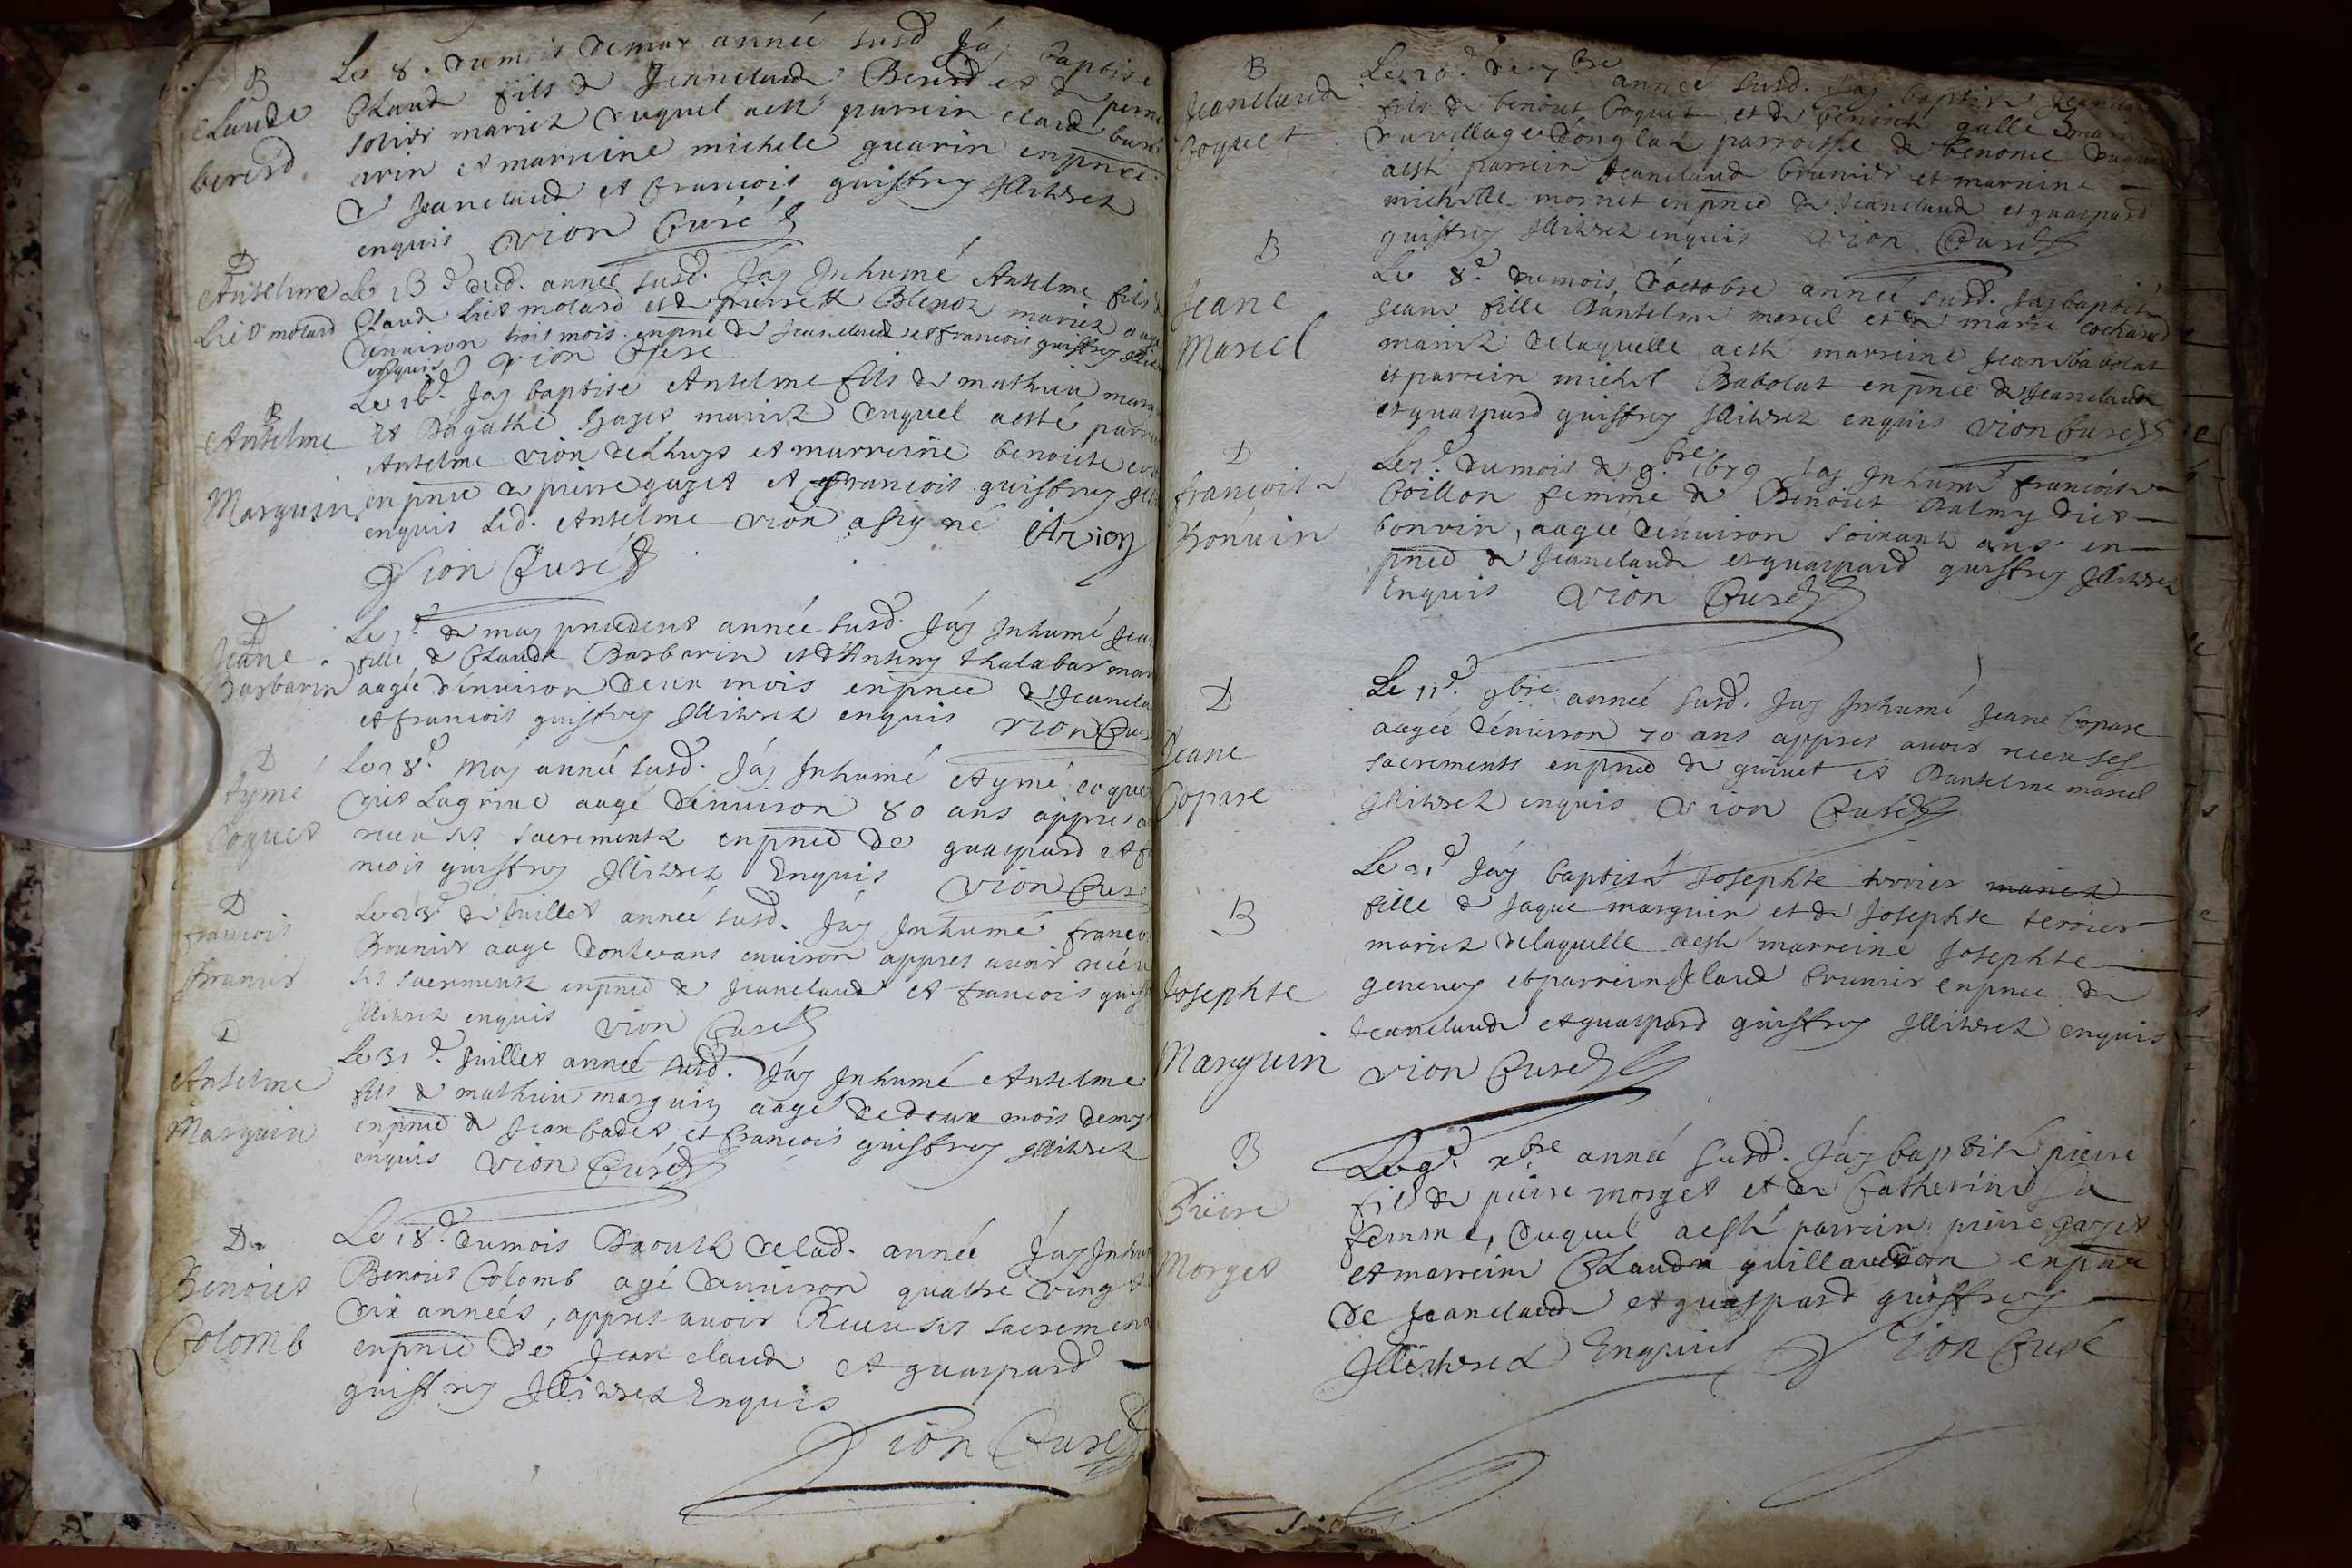 B
Claude
bererd
Le 8. du mois de may année susd. Jáy baptise
Claude fils de Jeanclaude Bererd et de perne
solier mariez duquel aesté parrein claude barb
arin et marreine michele guarin enpnce
de Jeanclaude et francois guiffrey Illitrez
enquis vion Curé
D
Anselme
Liet motard
Le 13.d dud. année susd. Jáy Inhumé Anselme fils
Claude Liet motard et de pierrette Blenoz mariez aagé
denuiron trois mois enpnce de Jeanclaude et francois guiffrey
enquis vion Cure
B
Anselme
Marguin
Le 16.d Jay baptise Anselme fils de mathieu marg
et Dagathe gazet mariez duquel aesté parr
Anselme vion delhuys et marreine benoiste
enpnce de pierre gazet et francois guiffrey
enquis led. Anselme vion a signé A vion
Vion Curé
D
Jeane
Barbarin
Le de may precedent année susd. Jáy Inhumé Jea
fille de Claude Barbarin et d'Anteny thalabar mar
aagée dénuiron deux mois enpnce de Jeancla
et francois guiffrey Illitrez enquis vion Cur
D
Aymé
Coquet
Le 28.d May année susd. Jáy Inhumé Aymé coque
diet Lagrive aagé dénuiron 80 ans appres
receu ses sacrements enpnce de guaspard et f
ncois guiffrey Illitrez Enquis Vion Curé
D
francois
Brunier
Le 23.d de Juillet année susd. Jáy Inhumé franco
Brunier aage dontze ans enuiron appres auoir receu
ses sacrements enpnce de Jeanclaude et francois guiff
Illitrez enquis vion Curé
D
Anselme
Marguin
Le 31.d Juillet année susd. Jáy Inhumé Anselme
fils de mathieu marguin aagé de deux mois demy
enpnce de Jean Cadet et francois guiffrey Illitrez
enquis vion Curé
D
Benoiet
Colomb
Le 18.d du mois Daoust delad. année Jáy Inhu
Benoiet Colomb agé denuiron quattre vingt
dix années, appres auoir Receu ses sacremen
enpnce de Jean claude et guaspard
guiffrey Illitrez Enquis
Vion Curé
B
Jeanclaude
Coquet
Le 20.d de 7.bre année susd. Jay baptise Jeancla
fils de benoiet Coquet et de benoiete galle mari
du village Donglaz parroisse de benonce duque
aesté parrein Jeanclaude brunier et marreine
michelle mornet enpnce de Jeanclaude et guaspard
guiffrey Illitrez enquis vion Curé
B
Jeane
Marcel
Le 8.d du mois doctobre année susd. Jay baptisé
Jeane fille Dantelme marcel et de marie Cochard
mariez delaquelle aesté marreine Jeane babolat
et parrein michel Babolat enpnce de Jeanclaude
et guaspard guiffrey Illitrez enquis vion Curé
D
francoise
Bonuin
Le du mois de 9.bre 1679 Jay Inhumé francoise
Coillon femme de Benoiet Balmy diet
bonvin, aagée denuiron soixante ans en
pnce de Jeanclaude et guaspard guiffrey Illitrez
Enquis vion Curé
D
Jeane
Copare
Le 11.d 9bre année susd. Jay Inhumé Jeane Copare
aagée dénuiron 70 ans appres auoir receu ses
sacrements enpnce de guinet et Dantelme marcel
Illitrez enquis vion Curé
B
Josephte
Marguin
Le 21.d Jáy baptisé Josephte terrier mariez
fille de Jaque marguin et de Josephte terrier
mariez delaquelle aesté marreine Josephte
geneuey et parrein Claude brunier enpnce de
Jeanclaude et guaspard guiffrey Illitrez enquis
vion Curé
B
Pierre
Morget
Le 9.d xbre année susd. Jáy baptisé pierre
fils de pierre morget et de Catherine sa
femme, duquel aesté parrein pierre gazet
et marreine Clauda guillaudon enpnce
de Jeanclaude et guaspard guiffrey
Illitrez Enquis Vion Curé